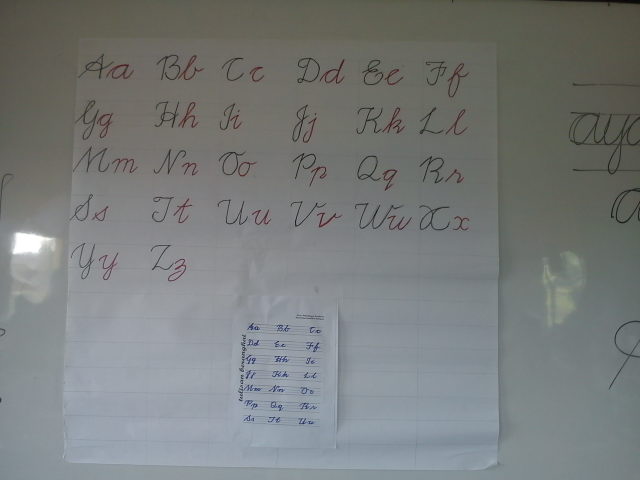 Aa Bb Cc Dd Ee Ff
Gg Hh Ii Jj Kk Ll
Mm Nn Oo Pp Qq Rr
Ss Tt Uu Vv Ww Xx
Yy Zz
Aa Bb Cc
Dd Ee Ff
Gg Hh Ii
Jj Kk Ll
Mm Nn Oo
Pp Qq Rr
Ss Tt Uu